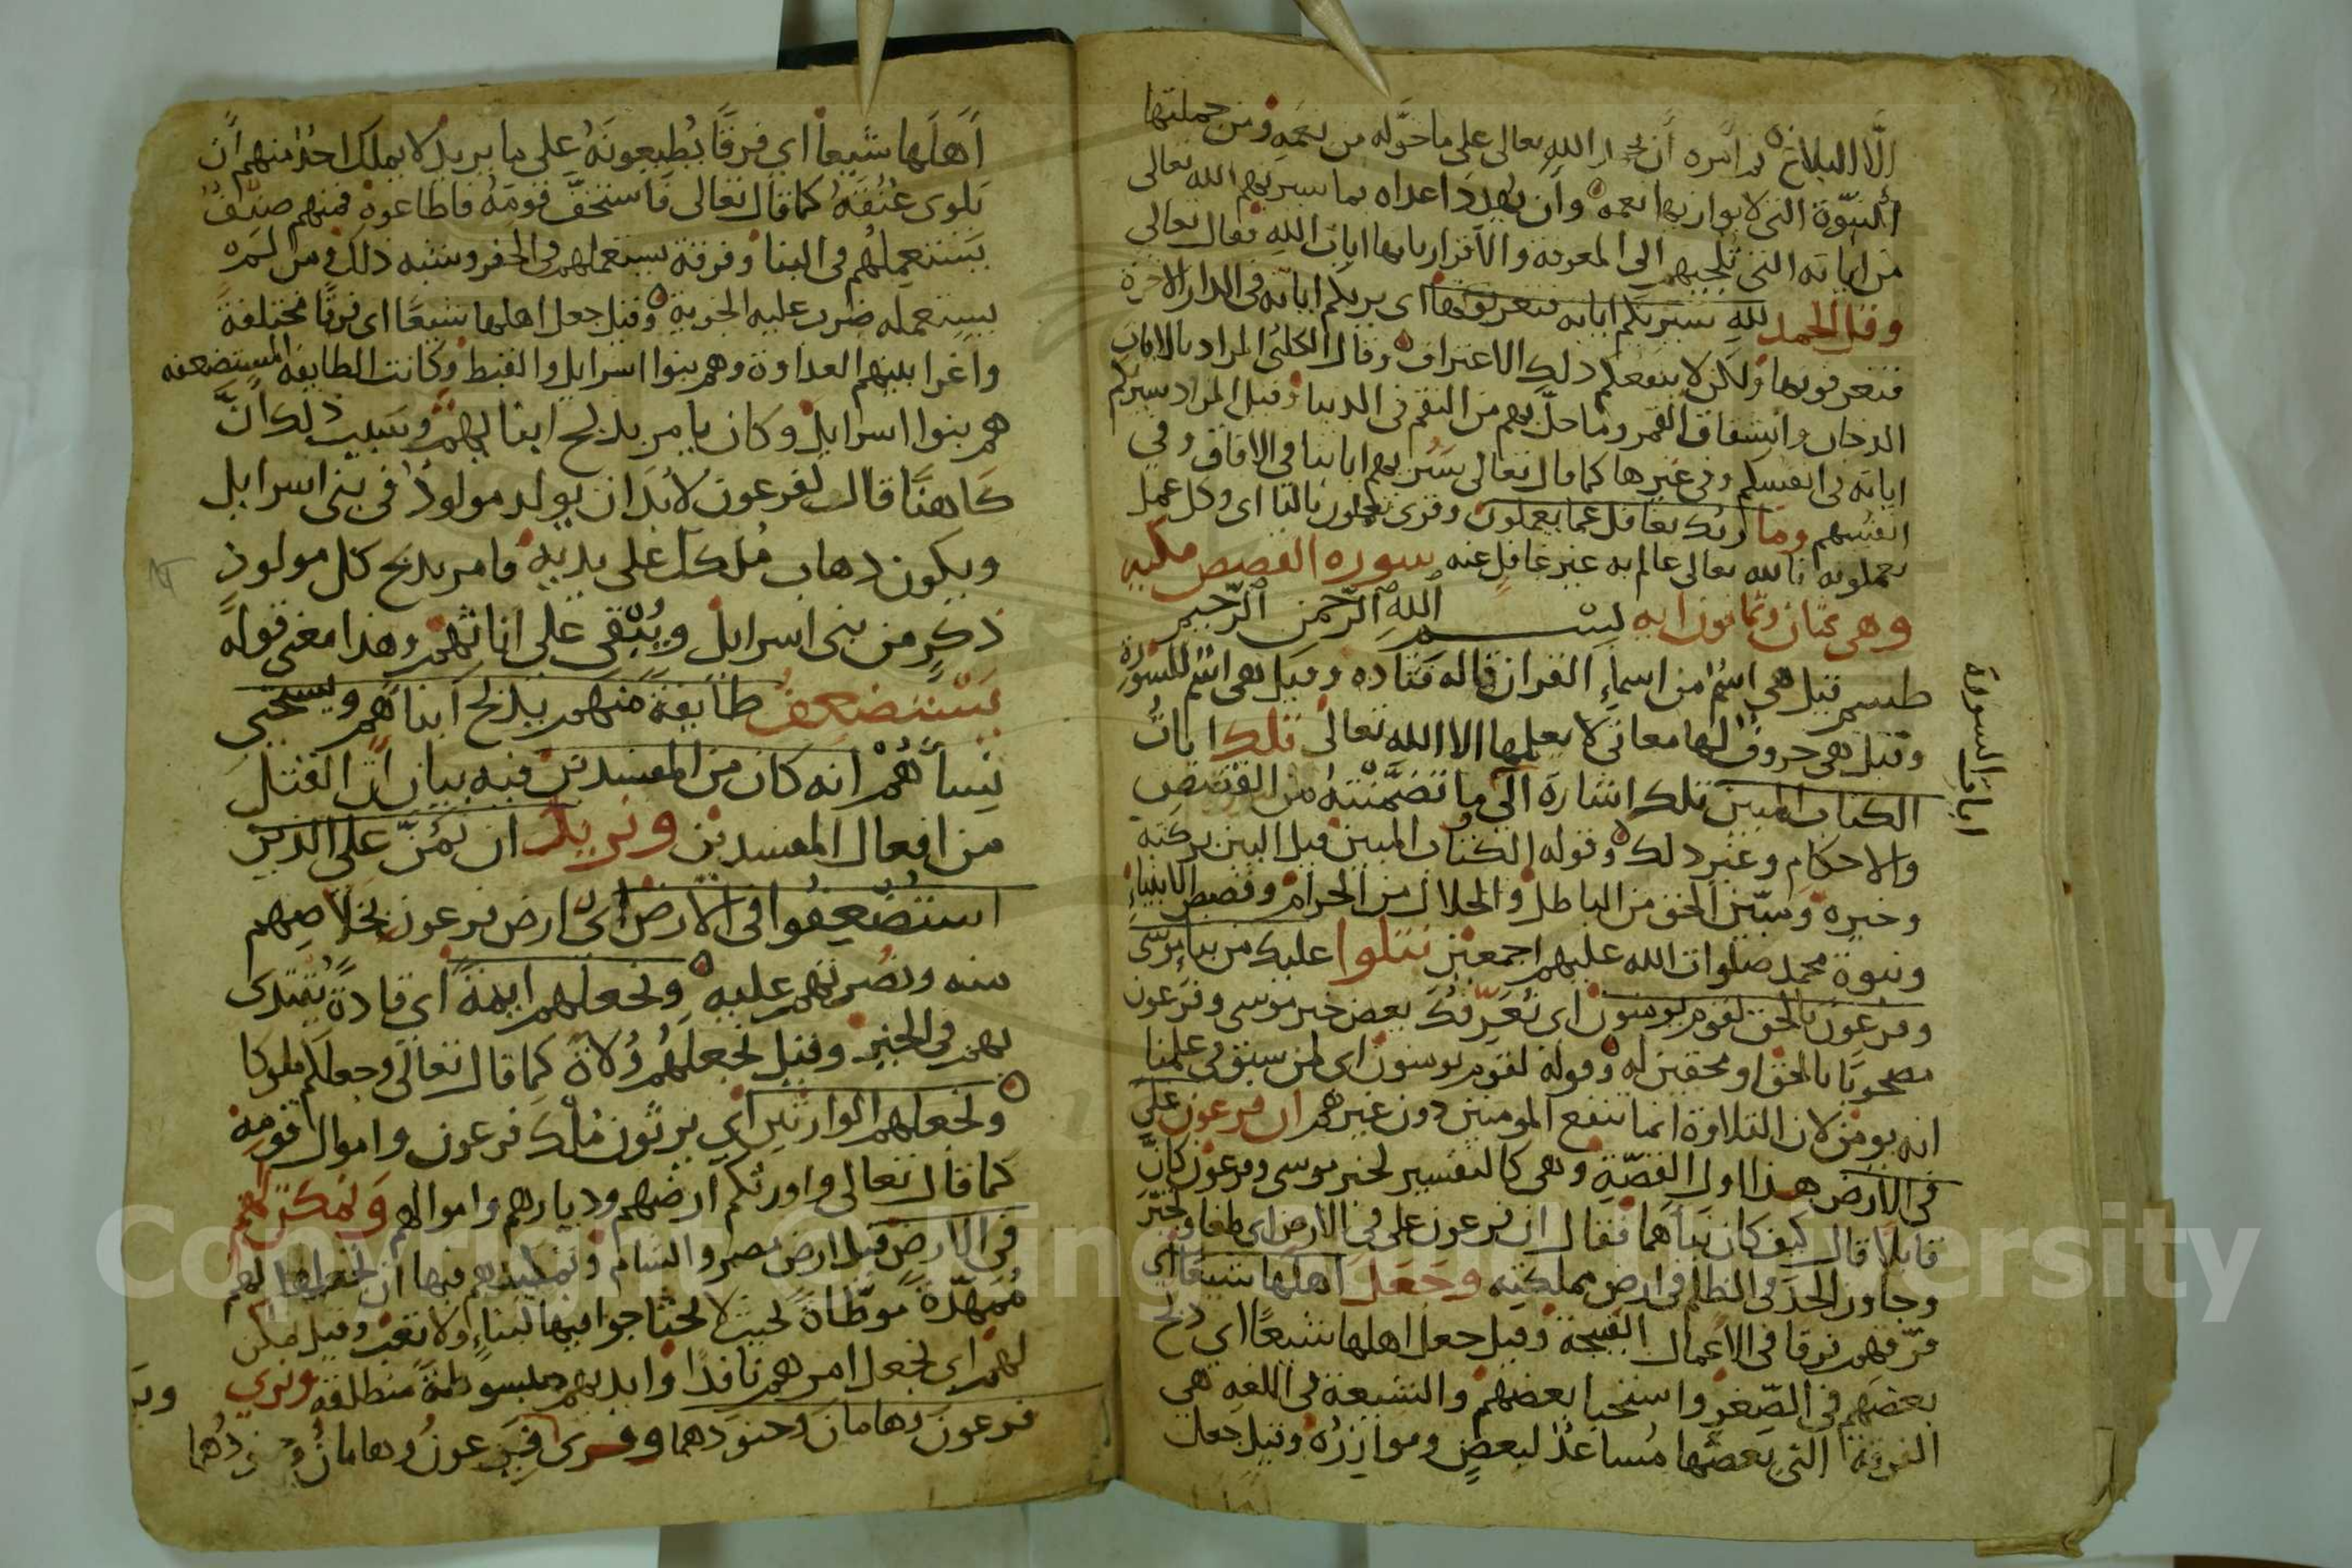 الا البلاغ ثم امره ان يحمد الله تعالى على ما خوّله من نعمه ومن جملتها
النبوّة التي لا يوازيها نعمه وان يهدد اعداه بما سيريهم الله تعالى
من اياته التي تلجيهم الى المعرفة والاقرار بانها ايات الله فقال تعالى
وقل الحمد لله سيريكم اياته فتعرفونها اى يريكم اياته في الدار الاخرة
فتعرفونها ولكن لا ينفعكم ذلك الاعتراف وقال الكلبي المراد بالايات
الدخان وانشقاق القمر وما حل بهم من النقم في الدنيا وقيل المراد سيريكم
اياته في انفسكم وفي غيرها كما قال تعالى سنريهم اياتنا في الافاق وفي
انفسهم وما ربك بغافل عما يعملون وقرى تعملون بالتا اى وكل عمل
تعملونه فالله تعالى عالم به غير غافل عنه سورة القصص مكيه
وهي ثمان وثمانون ايه بسم الله الرحمن الرحيم
طسم قيل هي اسم من اسماء القران قاله قتاده وقيل هي اسم للسورة
وقيل هي حروف لها معاني لا يعلمها الا الله تعالى تلك ايات
الكتاب المبين تلك اشارة الى ما تضمنته من القصص
والاحكام وغير ذلك وقوله الكتاب المبين قيل البين بركته
وخيره وسبيّن الحق من الباطل والحلال من الحرام وقصص الانبياء
ونبوة محمد صلوات الله عليهم اجمعين نتلوا عليك من نبا موسى
وفرعون بالحق لقوم يومنون اى نعرّفك بعض خبر موسى وفرعون
مصحوبًا بالحق او محقين له وقوله لقوم يومنون اى لمن سبق في علمنا
انه يومن لان التلاوة انما تنفع المومنين دون غيرهم ان فرعون علي
في الارض هذا اول القصّة وهي كالتفسير لخبر موسى وفرعون كانّ
قايلا قال كيف كان نباهما فقال ان فرعون على في الارض اى طغا وتجبّر
وجاوز الحد في الظلم في ارض مملكته وجعل اهلها شيعا اي
فرّقهم فرقا في الاعمال القبيحة وقيل جعل اهلها شيعًا اي ذبح
بعضهم في الصّغر واستحيا بعضهم والشيعة في اللغه هي
الفرقة التي بعضها مساعدٌ لبعضٍ وموازره وقيل جعل
ايات السورة
اهلها شيعا اي فرقًا يطيعونه على ما يريد لا يملك احدٌ منهم ان
يلوى عنقه كما قال تعالى فاستخفّ قومه فاطاعوه فمنهم صنفٌ
يستعملهم في البنا وفرقة يستعملهم في الحفر وشبه ذلك ومن لم
يستعمله ضرب عليه الجزية وقيل جعل اهلها شيعًا اى فرقًا مختلفةً
واغرا بينهم العداوة وهم بنوا اسرايل والقبط وكانت الطايفة المستضعفه
هم بنوا اسرايل وكان يامر بذبح ابنايهم وسبب ذلك انّ
كاهنًا قال لفرعون لا بد ان يولد مولودٌ في بني اسرايل
ويكون ذهاب ملكك على يديه فامر بذبح كل مولودٍ
ذكرٍ من بني اسرايل ويُبْقي على اناثهم وهذا معنى قوله
يستضعف طايفة منهم يذبح ابناهم ويستحيي
نساهُمْ انه كان من المفسدين فيه بيان ان القتل
من افعال المفسدين ونريد ان نمُنّ على الذين
استضعفوا في الارض اي ارض فرعون بخلاصهم
منه ونصرتهم عليه ونجعلهم ايمةً اي قادةً يُقتدى
بهم في الخير وقيل نجعلهم وُلاةً كما قال تعالى وجعلكم ملوكا
ونجعلهم الوارثين اي يرثون ملك فرعون واموال قومه
كما قال تعالى واورثكم ارضهم وديارهم واموالهم ونمكن لهم
في الارض قيل ارض مصر والشام وتمكينهم فيها ان نجعلها لهم
مُمهّدةً موطّاةً بحيث لا يحتاجوا فيها لبناءٍ ولا تعب وقيل نمكن
لهم اى نجعل امرهم نافذًا وايديهم مبسوطة منطلقة ونري
فرعون وهامان وجنودهما وقرى فيَرى فرعونُ وهامانُ وجنودُهما